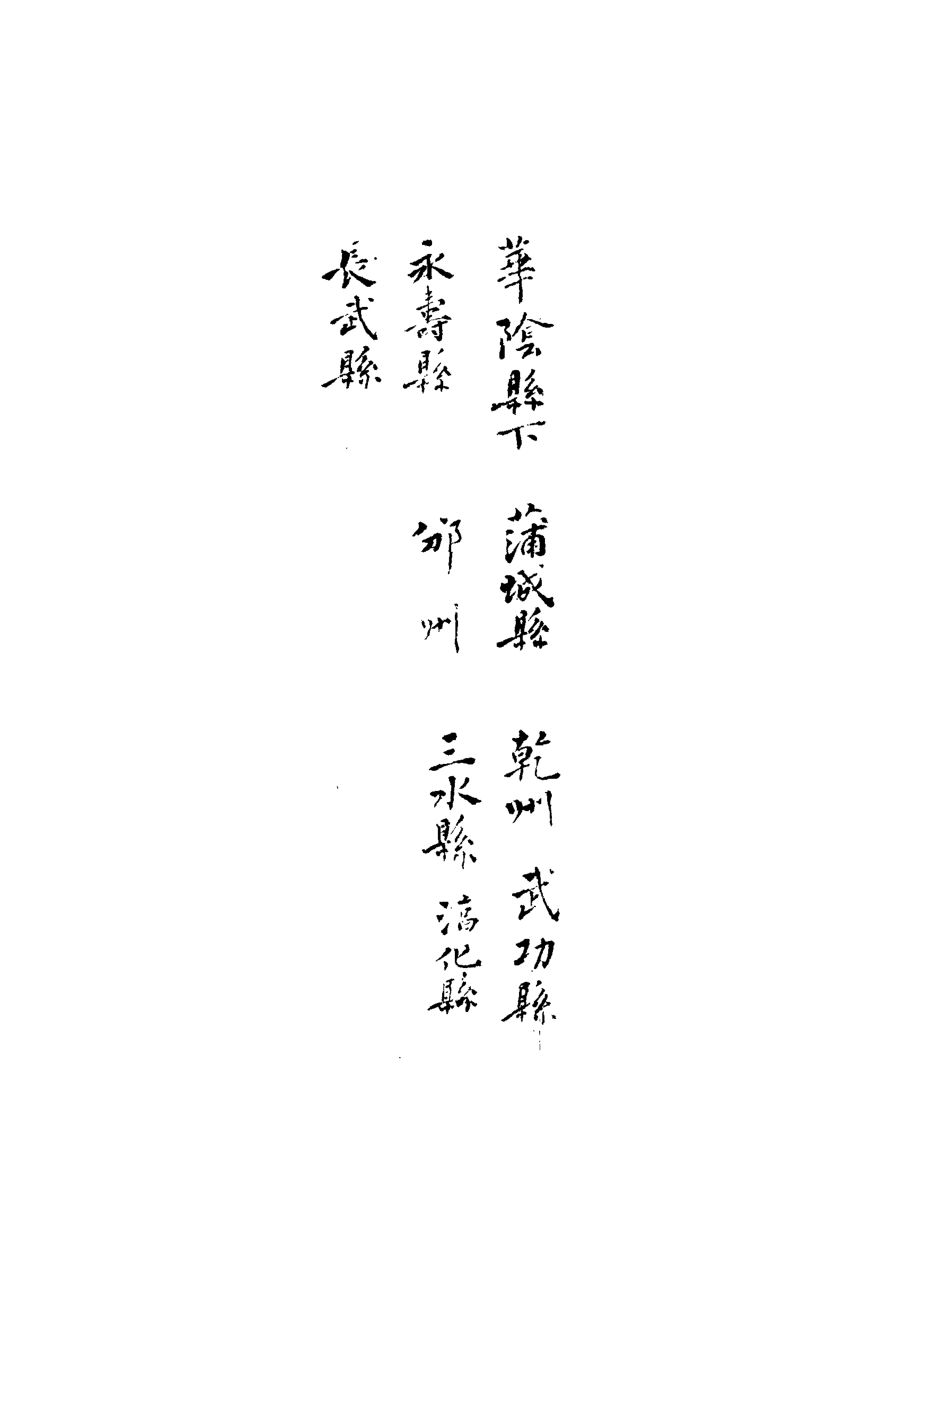 華陰縣下 蒲城縣 乾州 武功縣
永壽縣 邠州 三水縣 湻化縣
長武縣